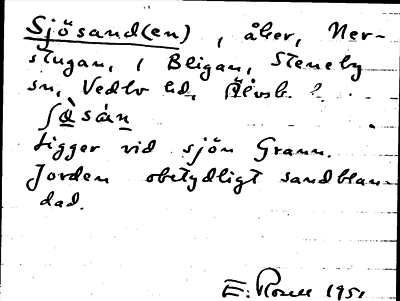 Sjösand(en), åker, Ner-
stugan, 1 Bligan, Steneby
sn, Vedbo hd, Älvsb. l.
ʃɑ̀sán
Ligger vid sjön Grann.
Jorden obetydligt sandblan-
dad.
E. 1951